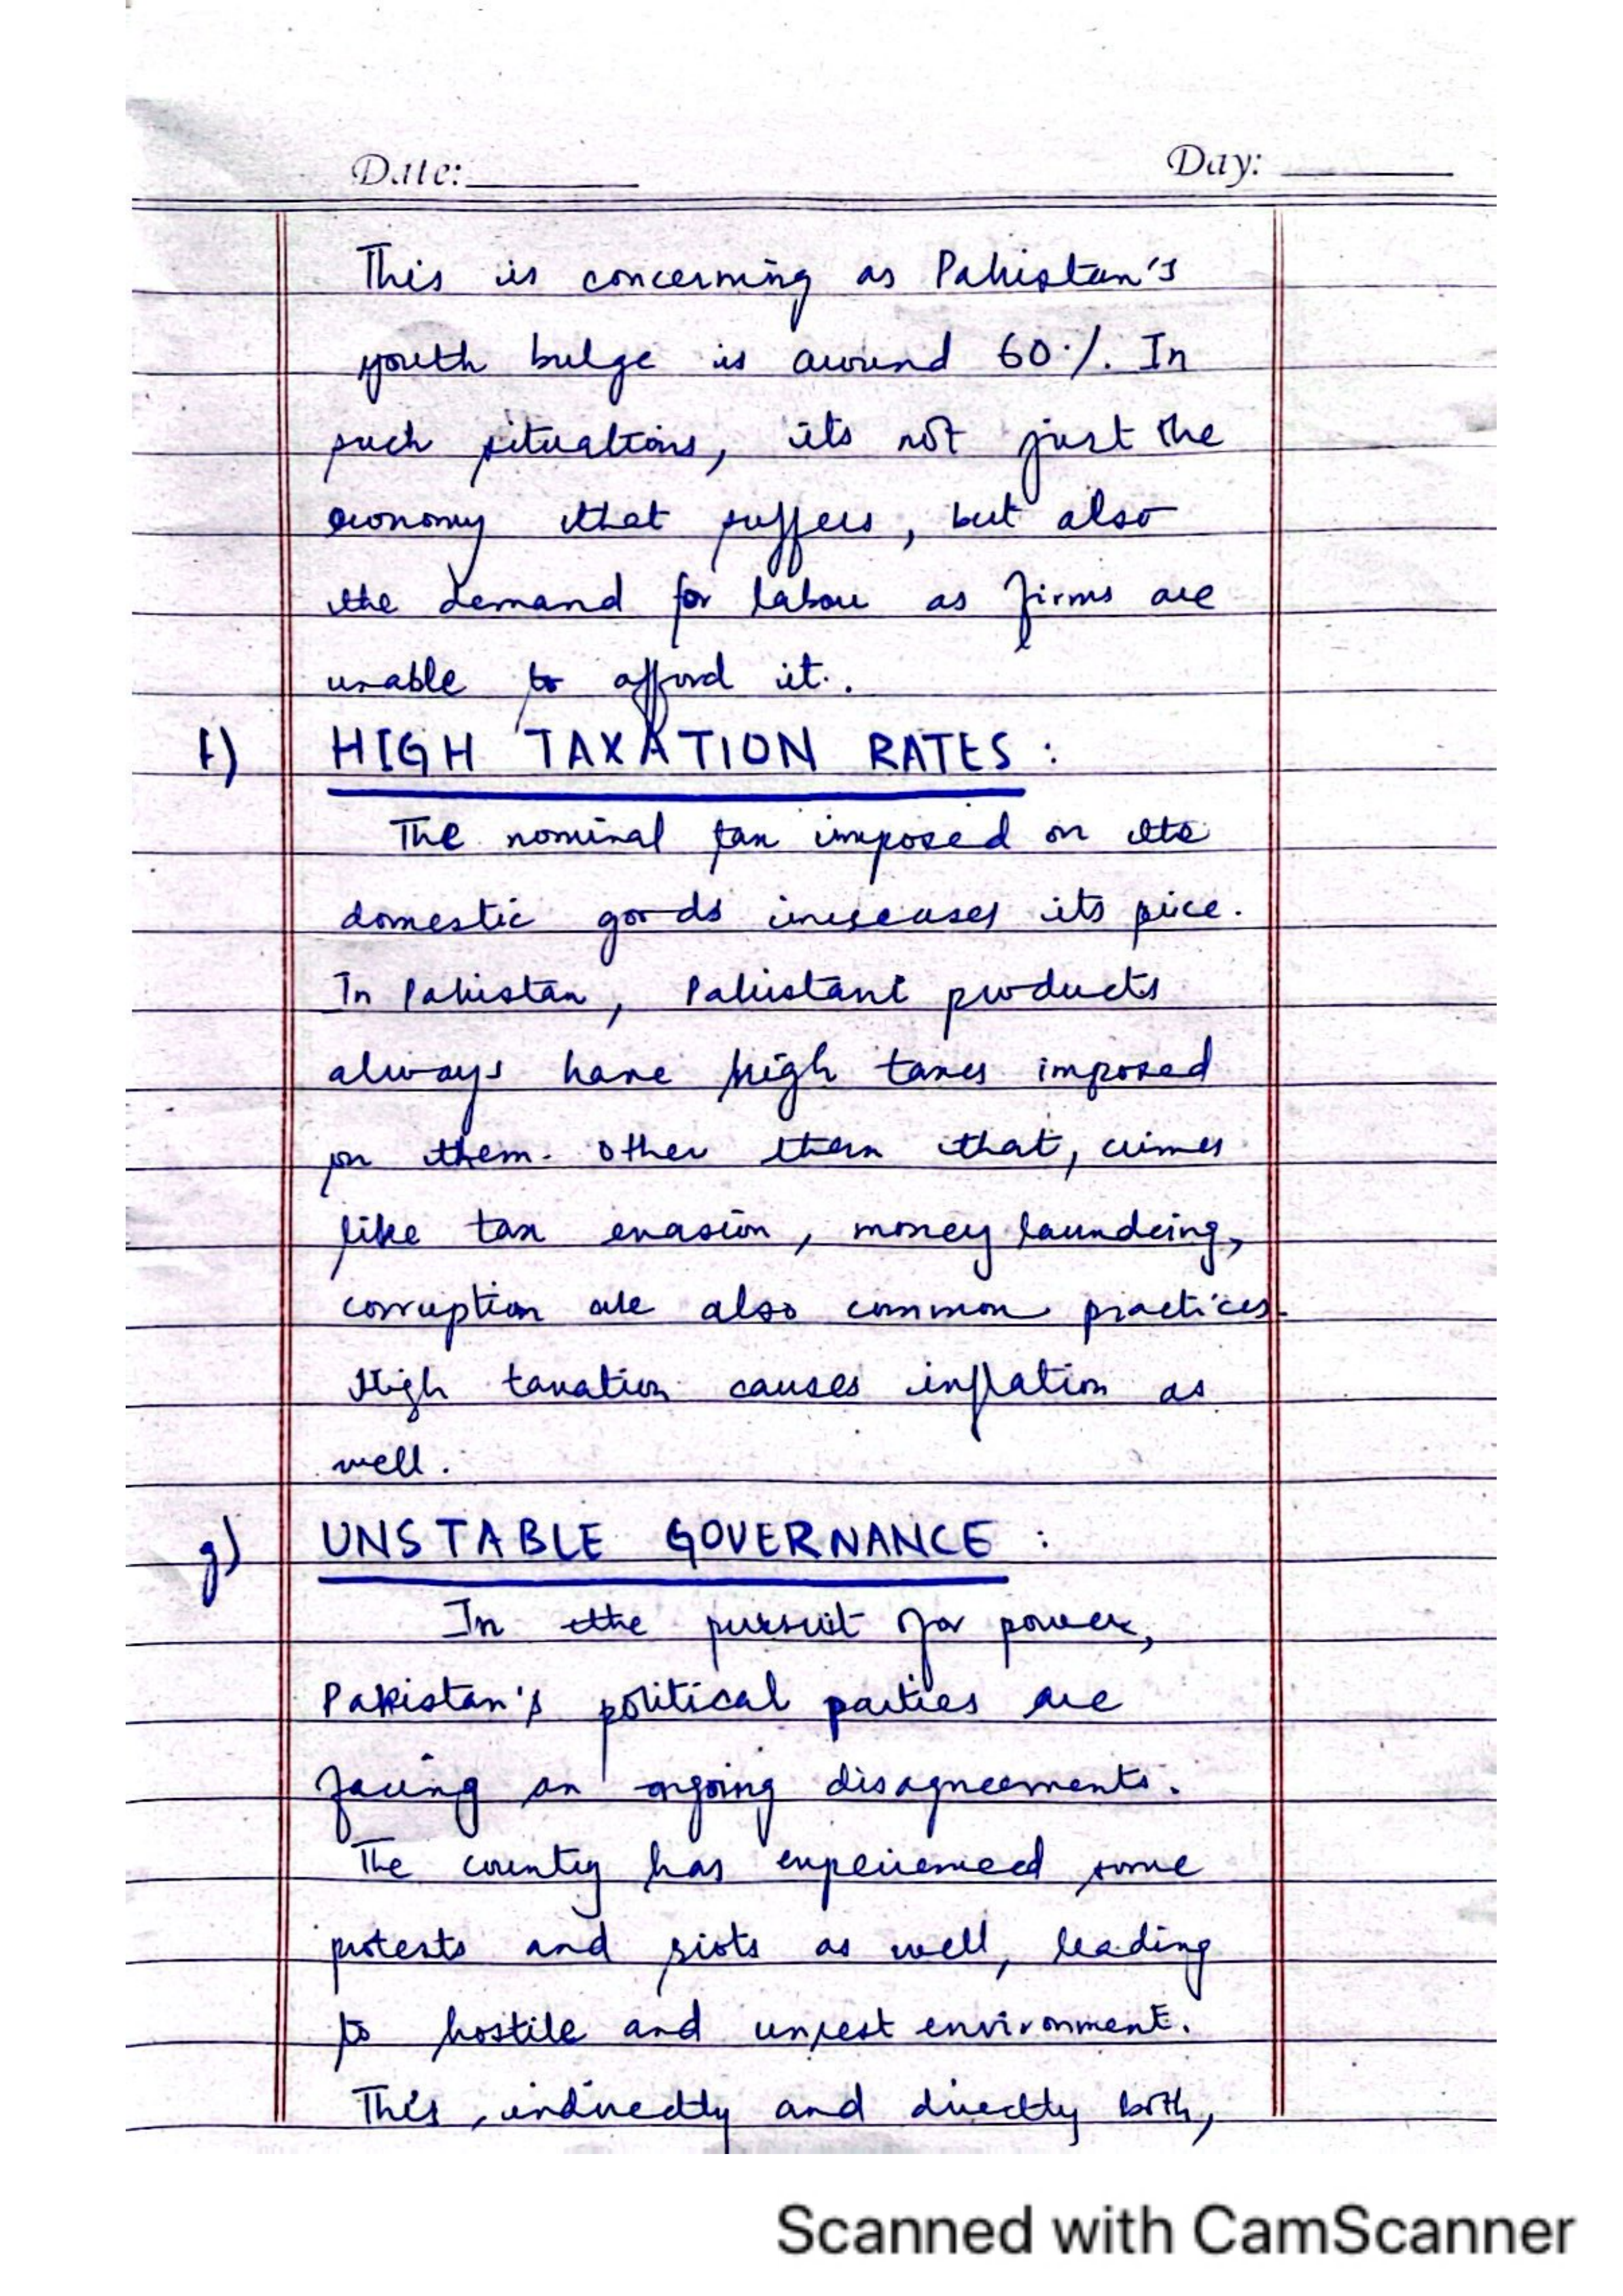 Date: Day:
This is concerning as Pakistan's
youth bulge is around 60%. In
such situations, its not just the
economy that suffers, but also
the demand for labour as firms are
unable to afford it.
f) HIGH TAXATION RATES :
The nominal tax imposed on the
domestic goods increases its price.
In Pakistan, Pakistani products
always have high taxes imposed
on them. Other than that, crimes
like tax evasion, money laundering,
corruption are also common practices.
High taxation causes inflation as
well.
g) UNSTABLE GOVERNANCE :
In the pursuit for power,
Pakistan's political parties are
facing an ongoing disagreements.
The country has experienced some
protests and riots as well, leading
to hostile and unrest environment.
This, indirectly and directly both,
Scanned with CamScanner